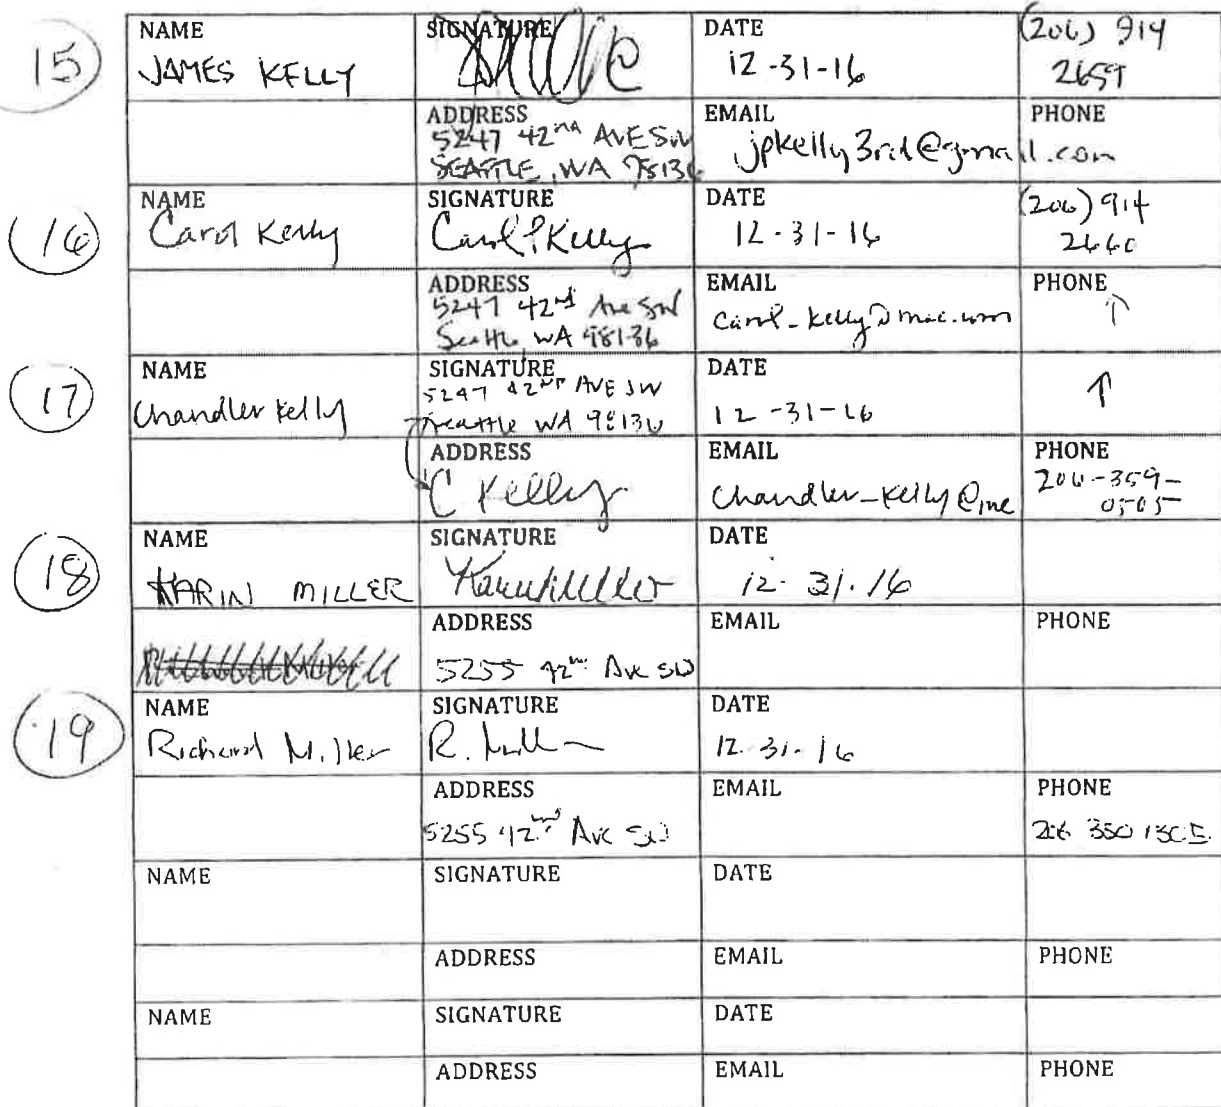 15
NAME
JAMES KELLY
SIGNATURE
DATE
12-31-16
(206) 914
2659
ADDRESS
5247 42nd AVE SW
SEATTLE, WA 98136
EMAIL
jpkelly3rd@gmail.com
PHONE
16
NAME
Carol Kelly
SIGNATURE
Carol P Kelly
DATE
12-31-16
(206) 914
2660
ADDRESS
5247 42nd Ave SW
Seattle, WA 98136
EMAIL
carol_kelly@mac.com
PHONE
↑
17
NAME
Chandler Kelly
SIGNATURE
5247 42ND AVE SW
Seattle WA 98136
DATE
12-31-16
↑
ADDRESS
C Kelly
EMAIL
Chandler_Kelly@me
PHONE
206-359-
0505
18
NAME
KARIN MILLER
SIGNATURE
Karin Miller
DATE
12.31.16
ADDRESS
5255 42nd Ave SW
EMAIL
PHONE
19
NAME
Richard Miller
SIGNATURE
R. Mill
DATE
12.31.16
ADDRESS
5255 42nd Ave SW
EMAIL
PHONE
206 350 1305
NAME
SIGNATURE
DATE
ADDRESS
EMAIL
PHONE
NAME
SIGNATURE
DATE
ADDRESS
EMAIL
PHONE